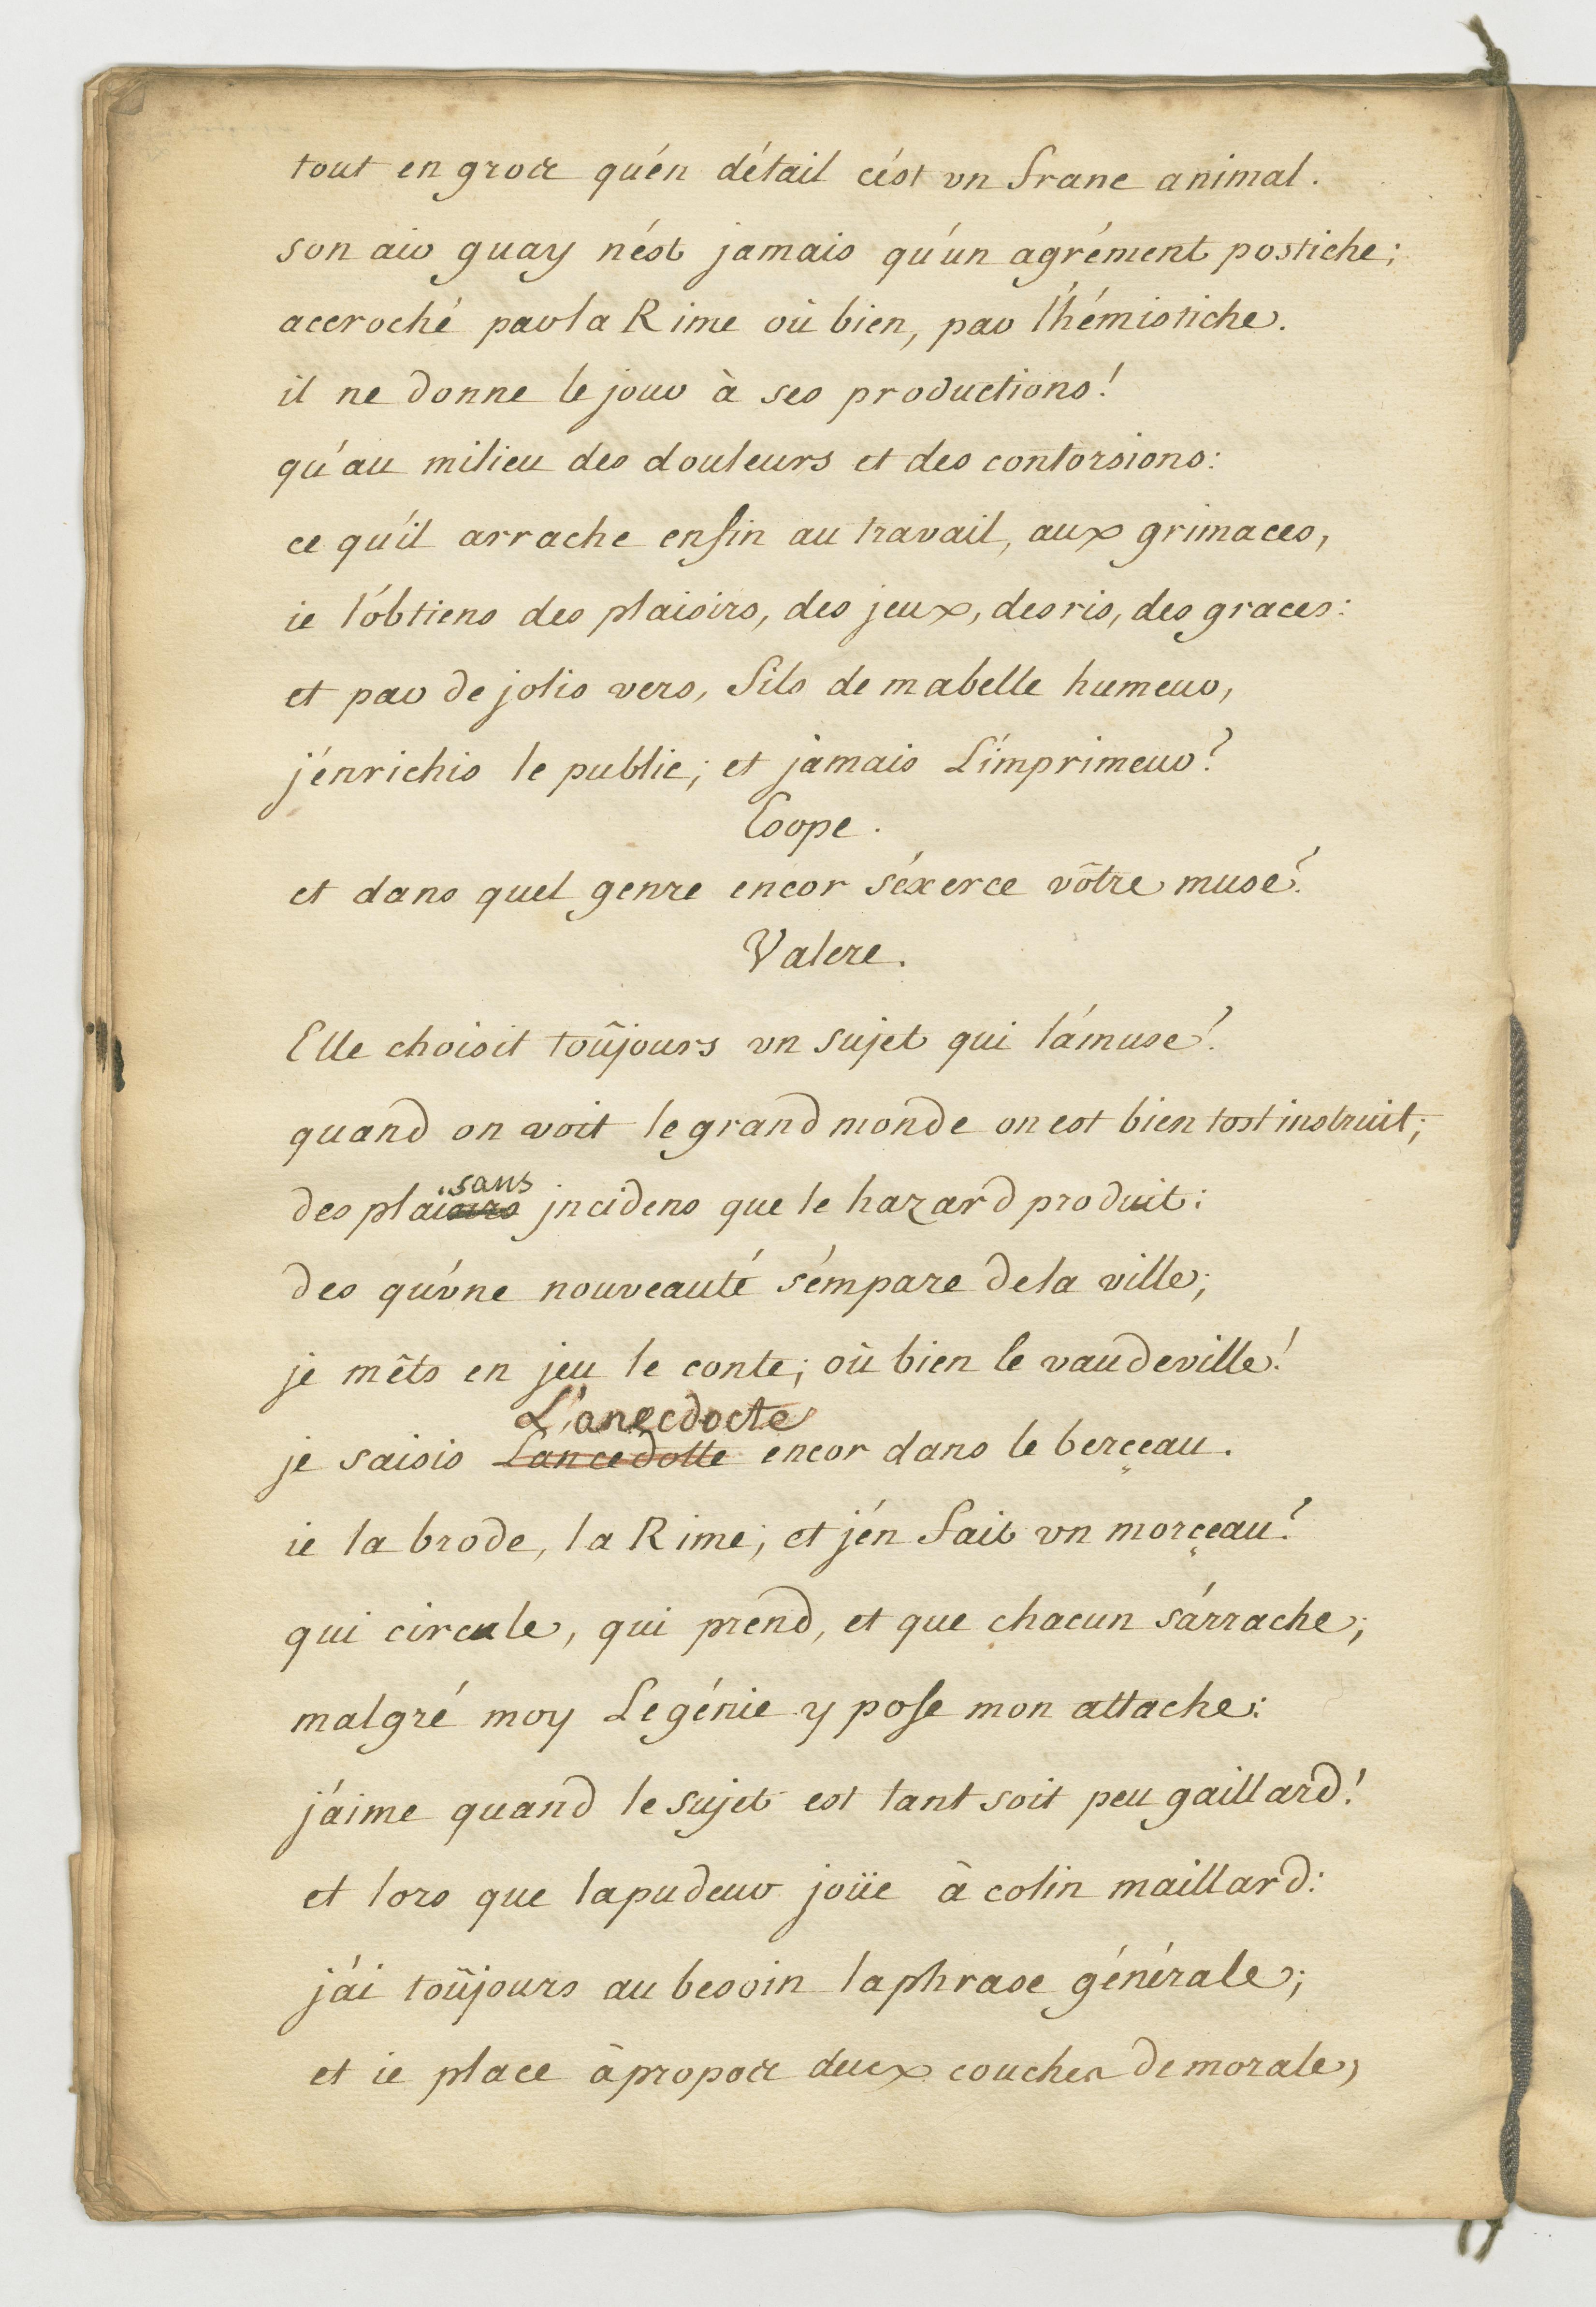 tout en gros qu'én détail cést vn franc animal.
son air guay n'ést jamais qu'un agrément postiche;
accroché par la Rime où bien, par l'hémistiche.
il ne donne le jour à ses productions!
qu'au milieu des douleurs et des contorsions:
ce qu'il arrache enfin au travail, aux grimaces,
ie l'óbtiens des plaisirs, des jeux, des ris, des graces:
et par de jolis vers, fils de ma belle humeur,
j'énrichis le public; et jamais L'imprimeur?
Esope.
et dans quel genre encor s'éxerce vôtre muse?
Valere.
Elle choisit toûjours vn sujet qui l'ámuse!
quand on voit le grand monde on est bien tost instruit;
sans
des plaisirs jncidens que le hazard produit:
des qu'vne nouveauté s'émpare de la ville;
je mêts en jeu le conte; où bien le vaudeville!
L'anecdocte
je saisis Lancedotte encor dans le berçeau.
ie la brode, la Rime; et j'én fait vn morçeau?
qui circule, qui prend, et que chacun s'árrache;
malgré moy Le génie y pose mon attache:
j'aime quand le sujet est tant soit peu gaillard!
et lors que la pudeur joüe à colin maillard:
j'ái toûjours au besoin la phrase générale;
et ie place à propos deux couches de morale,